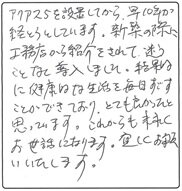 アクアス5を設置してから、早10年が
経とうとしています。新築の際に
工務店から紹介をされて、迷う
ことなく導入しました。結果的
に健康的な生活を毎日すごす
ことができており、とても良かったと
思っています。これからも末永く
お世話になります。宜しくお願
いいたします。